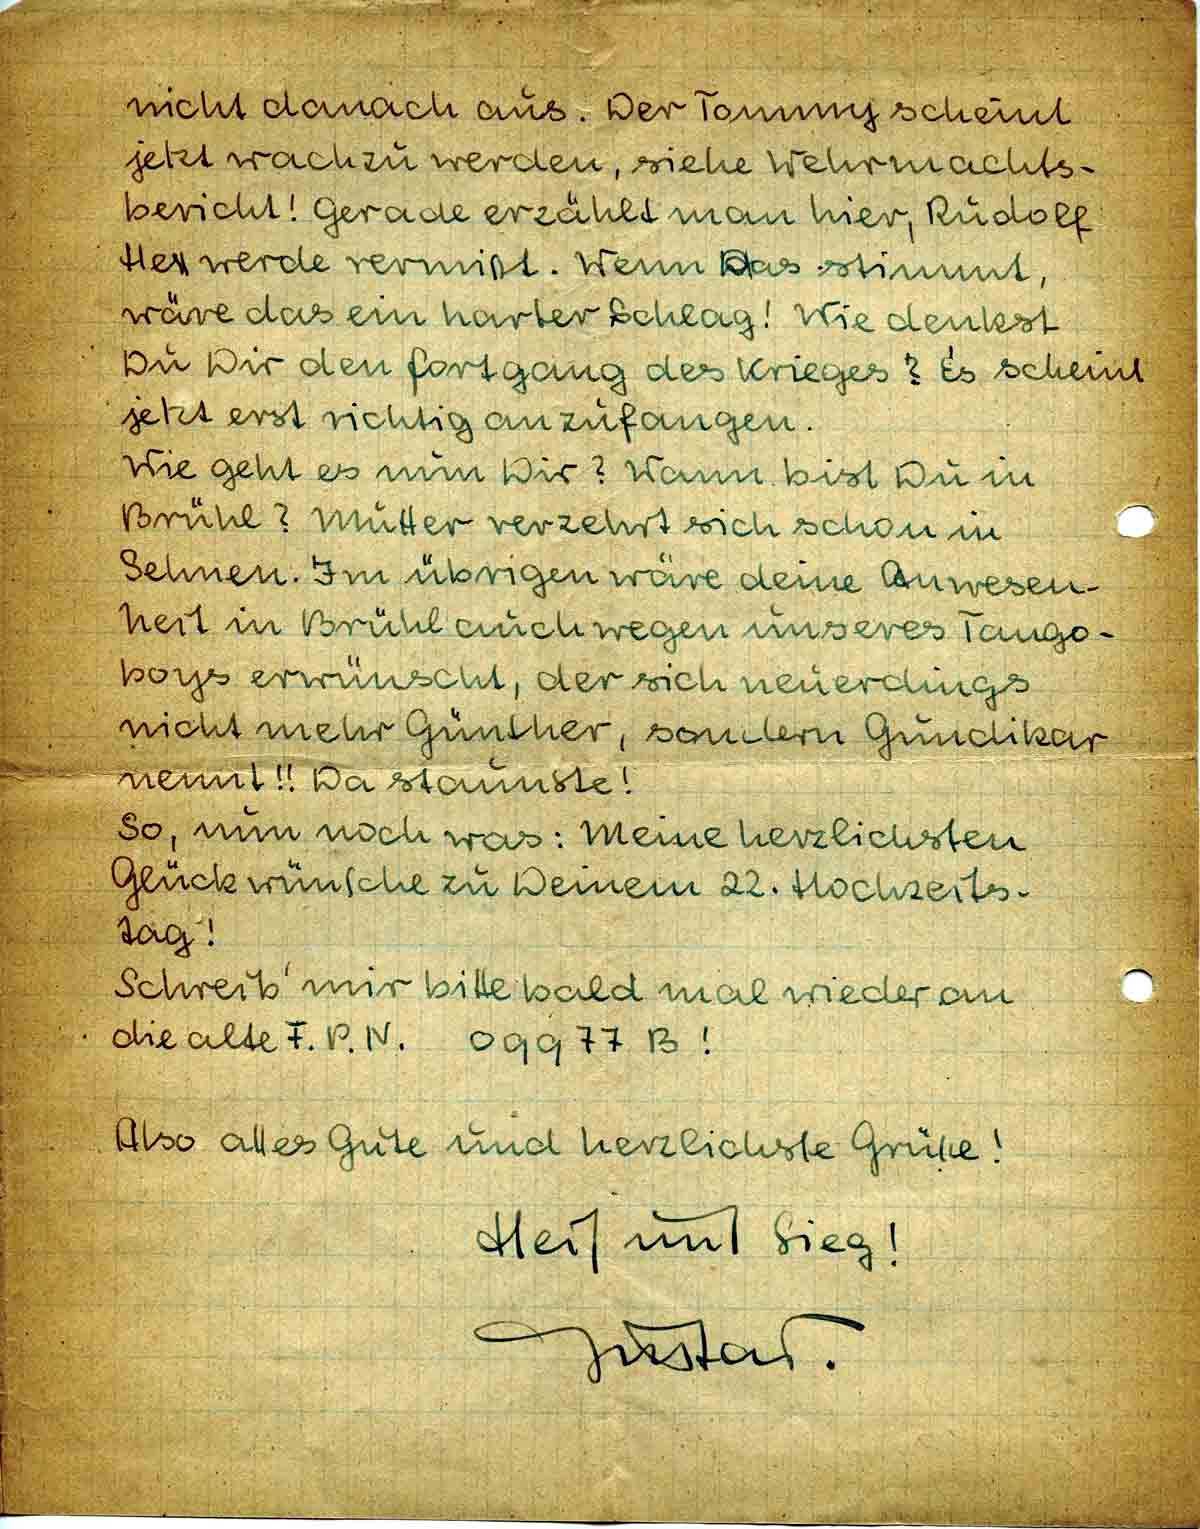 nicht danach aus. Der Tommy scheint
jetzt wachzu werden, siehe Wehrmachts-
bericht! Gerade erzählt man hier, Rudolf
Heß werde vermißt. Wenn Das stimmt,
wäre das ein harter Schlag! Wie denkst
Du Dir den Fortgang des Krieges? Es scheint
jetzt erst richtig anzufangen.
Wie geht es nun Dir? Wann bist Du in
Brühl? Mutter verzehrt sich schon in
Sehnen. Im übrigen wäre deine Anwesen-
heit in Brühl auch wegen unseres Tango-
boys erwünscht, der sich neuerdings
nicht mehr Günther, sondern Gundikar
nennt!! Da staunste!
So, nun noch was: Meine herzlichsten
Glückwünsche zu Deinem 22. Hochzeits-
tag!
Schreib' mir bitte bald mal wieder an
die alte F.P.N. 09977 B!
Also alles Gute und herzlichste Grüße!
Heil und Sieg!
Gustav.